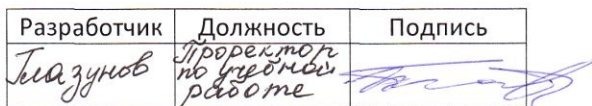 Разработчик Должность Подпись
Глазунов Проректор
по учебной
работе